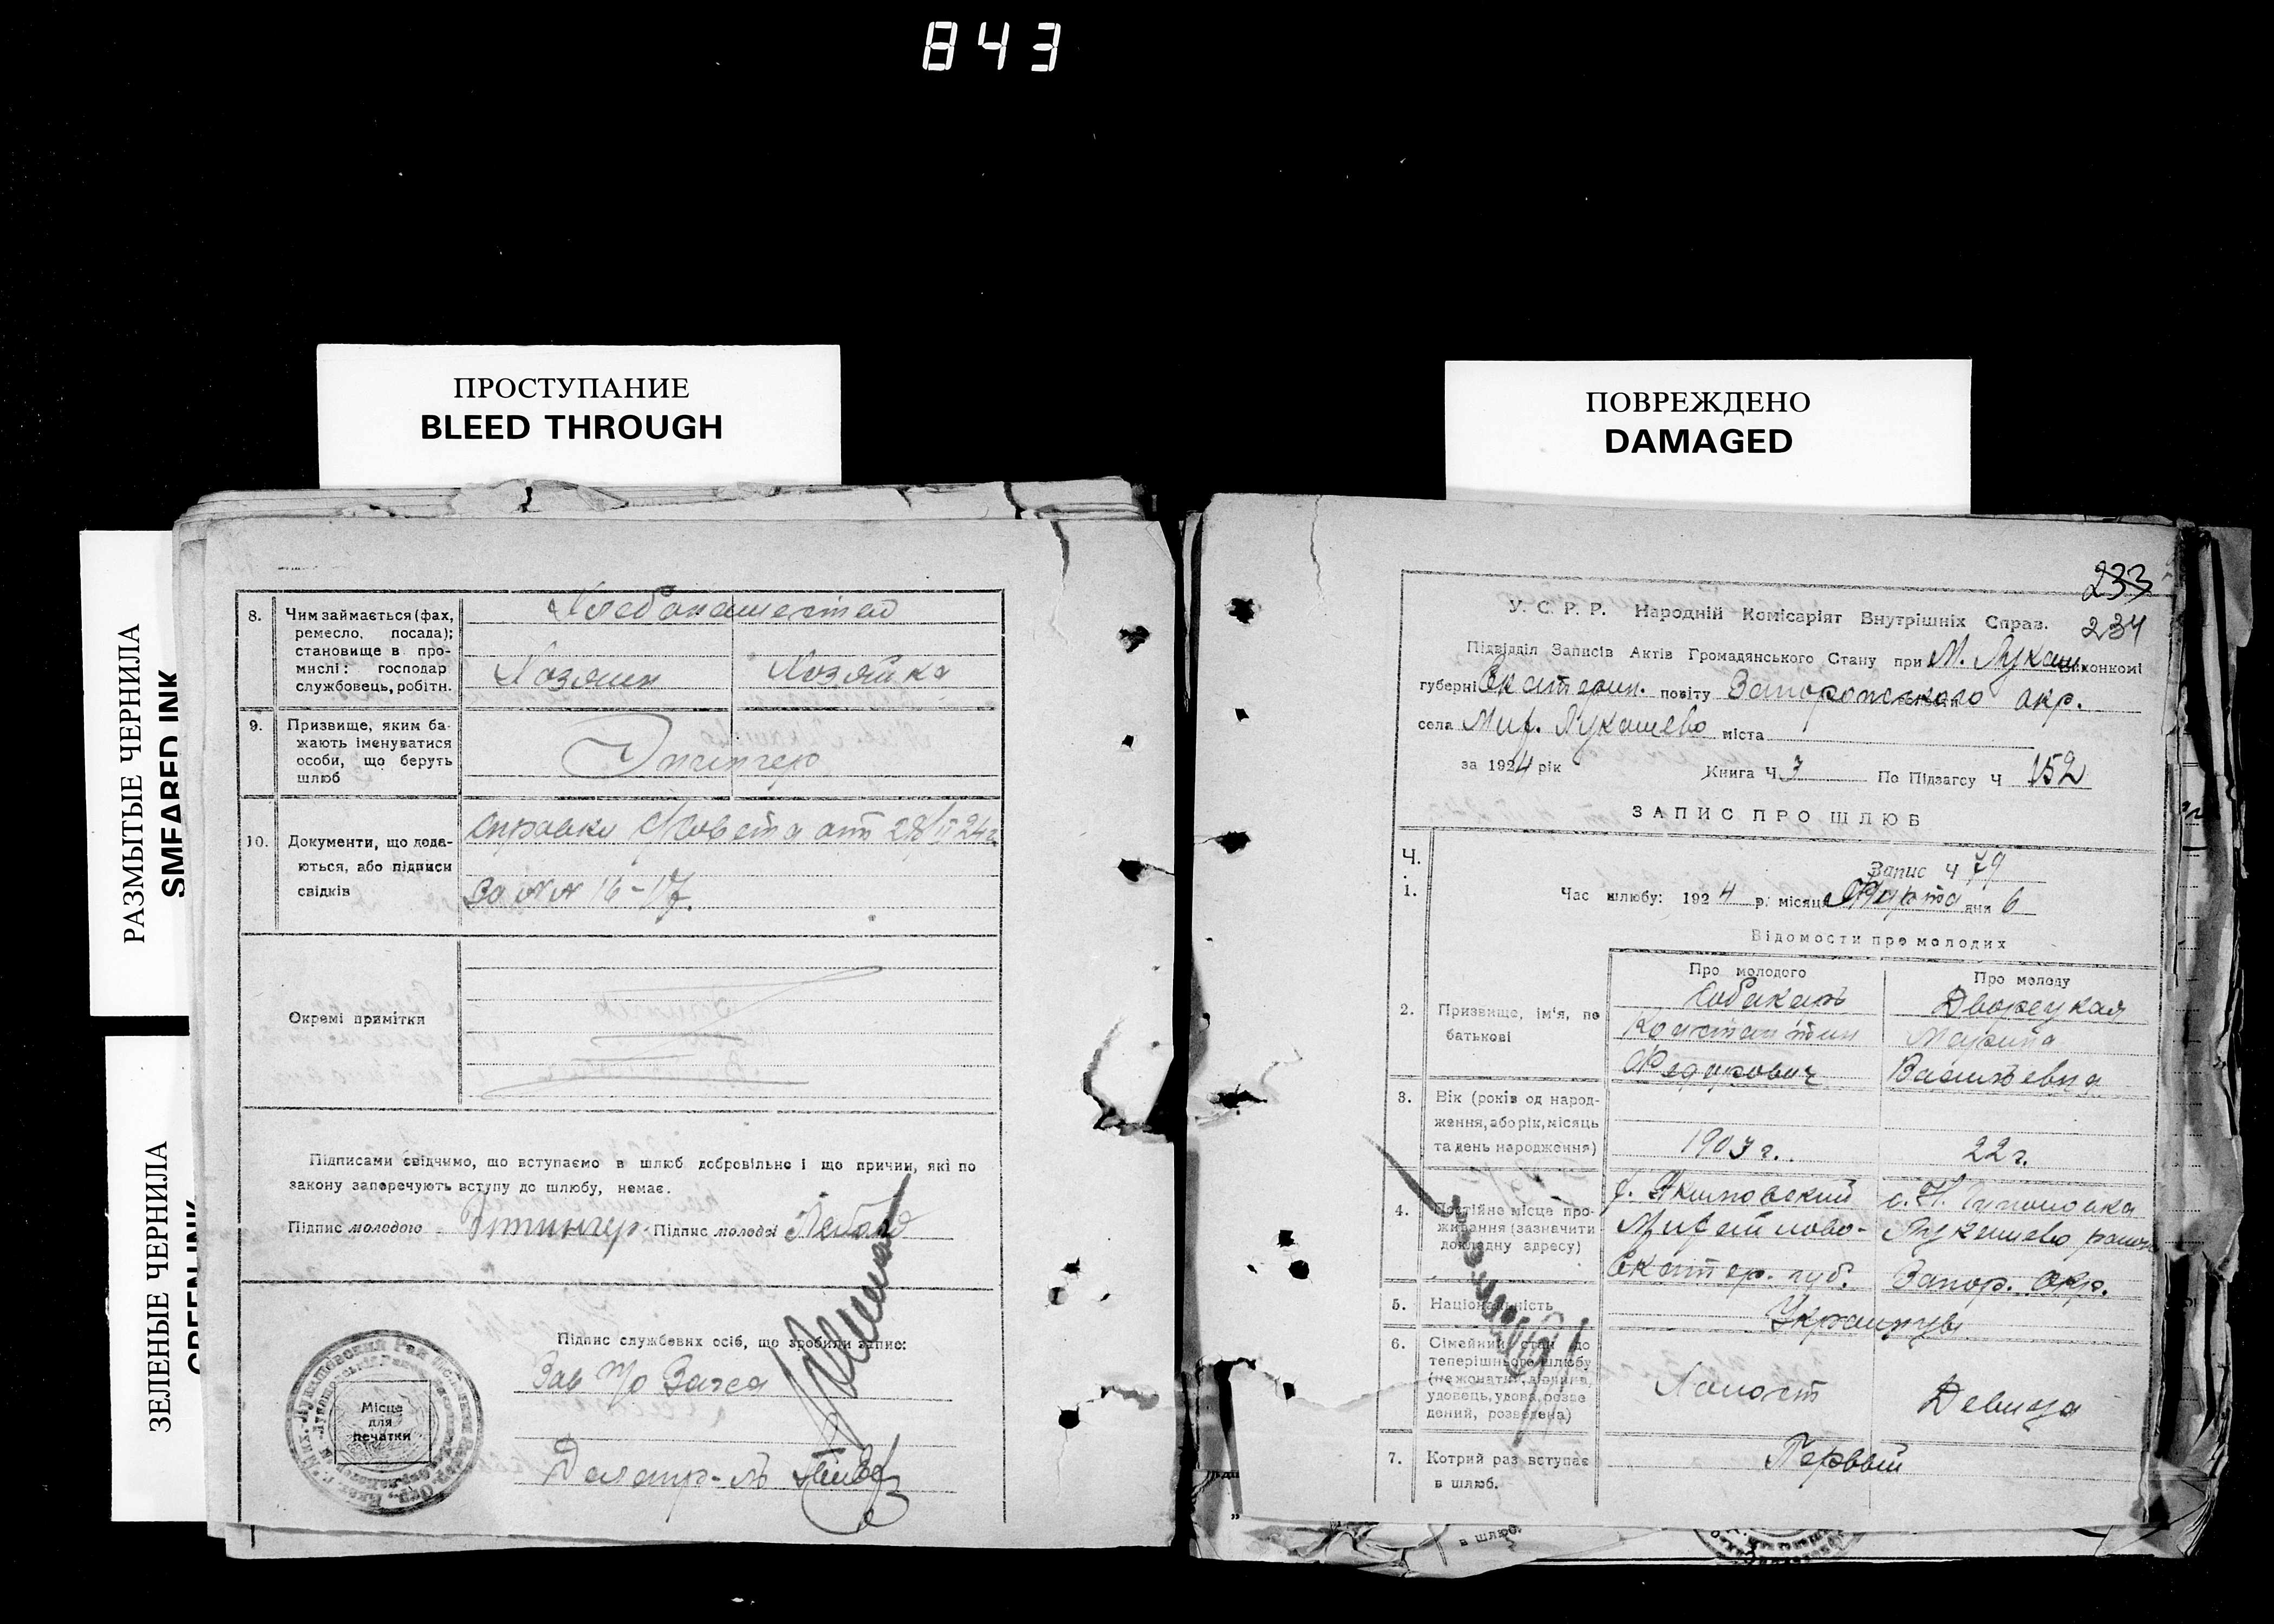 843
ПРОСТУПАНИЕ
BLEED THROUGH
ПОВРЕЖДЕНО
DAMAGED
РАЗМЫТЫЕ ЧЕРНИЛА
SMEARED INK
ЗЕЛЕНЫЕ ЧЕРНИЛА
GREEN INK
8. Чим займається (фах,
ремесло, посада);
становище в про-
мислі: господар
службовець, робітн.
Хлебопашество
Хозяин Хозяйка
9. Призвище, яким ба-
жають іменуватися
особи, що беруть
шлюб
10. Документи, що дода-
ються, або підписи
свідків
Справки С/Совета от 28/II 24 г.
за №№ 16-17.
Окремі примітки
Підписами свідчимо, що вступаємо в шлюб добровільно і що причин, які по
закону заперечують вступу до шлюбу, немає.
Підпис молодого Підпис молодої
Підпис службевих осіб, що зробили запис:
Зав П/о Загса
Делопр-ль
Місце
для
печатки
233
234
У. С. Р. Р. Народній Комісаріят Внутрішніх Справ.
Підвідділ Записів Актів Громадянського Стану при М. Лукаш. виконкомі
губерні Екатерин. повіту Запорожського окр.
села Мих. Лукашево міста
за 1924 рік Книга Ч. 3 По Підзагсу Ч 152
ЗАПИС ПРО ШЛЮБ
Ч.
1.
Запис Ч 79
Час шлюбу: 1924 р. місяця Марта дня 6
Відомости про молодих
Про молодого Про молоду
2. Призвище, ім'я, по
батькові
Собакарь Дворецкая
Константин Марина
Федорович Васильевна
3. Вік (років од народ-
ження, або рік, місяць
та день народження)
1903 г. 22 г.
4. Постійне місце про-
живання (зазначити
докладну адресу)
Лукашево район
Екатер. губ. Запор. окр.
5. Національність
Украинцы
6. Сімейний стан до
теперішнього шлюбу
(нежонатий, дівчина,
удовець, удова, розве
дений, розведена)
Холост Девица
7. Котрий раз вступає
в шлюб.
Первый
в шлюб.